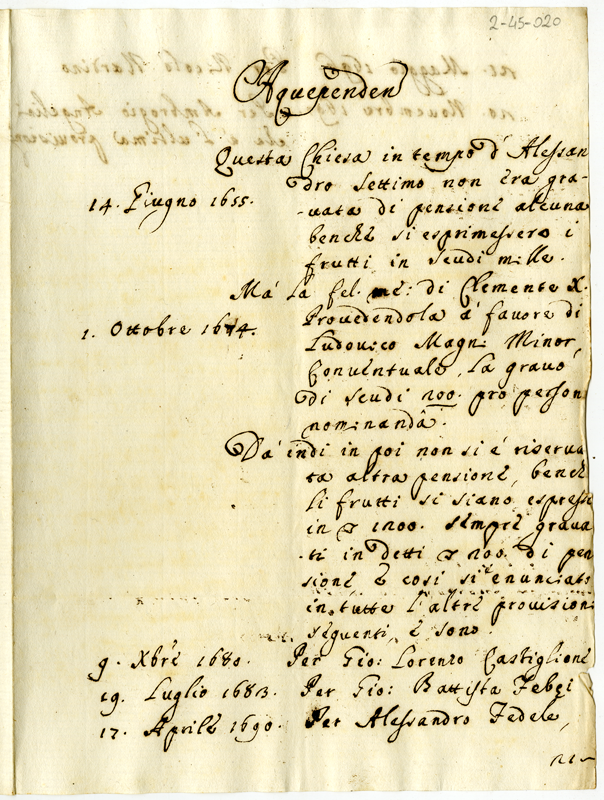 2-45-020
Aquependen
Questa Chiesa in tempo d'Alessan
14. Giugno 1655.
dro settimo non era gra-
-uata di pensione alcuna
benche si esprimessero i
frutti in scudi mille.
Ma la fel. me: di Clemente X.
1. Ottobre 1674.
Prouedendola à fauore di
Ludouico Magni Minor,
Conuentuale, la grauò
di scudi 200. pro person
nominandâ.
Da indi in poi non si è riserua
ta altra pensione, bench
li frutti si siano espressi
in 1200. sempre graua
ti in detti 200. di pen
sione e cosi si enunciato
in tutte l'altre prouision
seguenti, e sono.
9. Xbre 1680. Per Gio: Lorenzo Castiglione
19. Luglio 1683. Per Gio: Battista Febei
17. Aprile 1690. Per Alessandro Fedele,